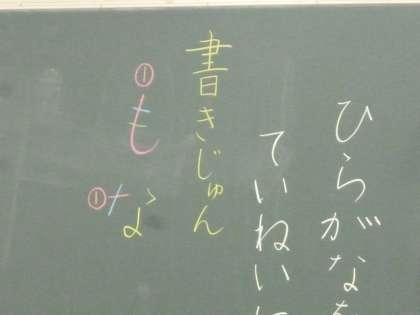 ひらがなを
ていねいに
書きじゅん
①も
①な